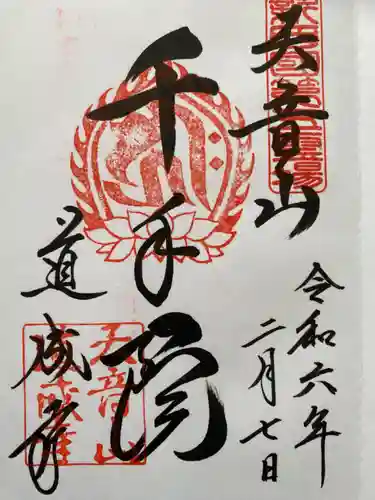 天音山
千手院
道成寺
令和六年
二月七日
天音山